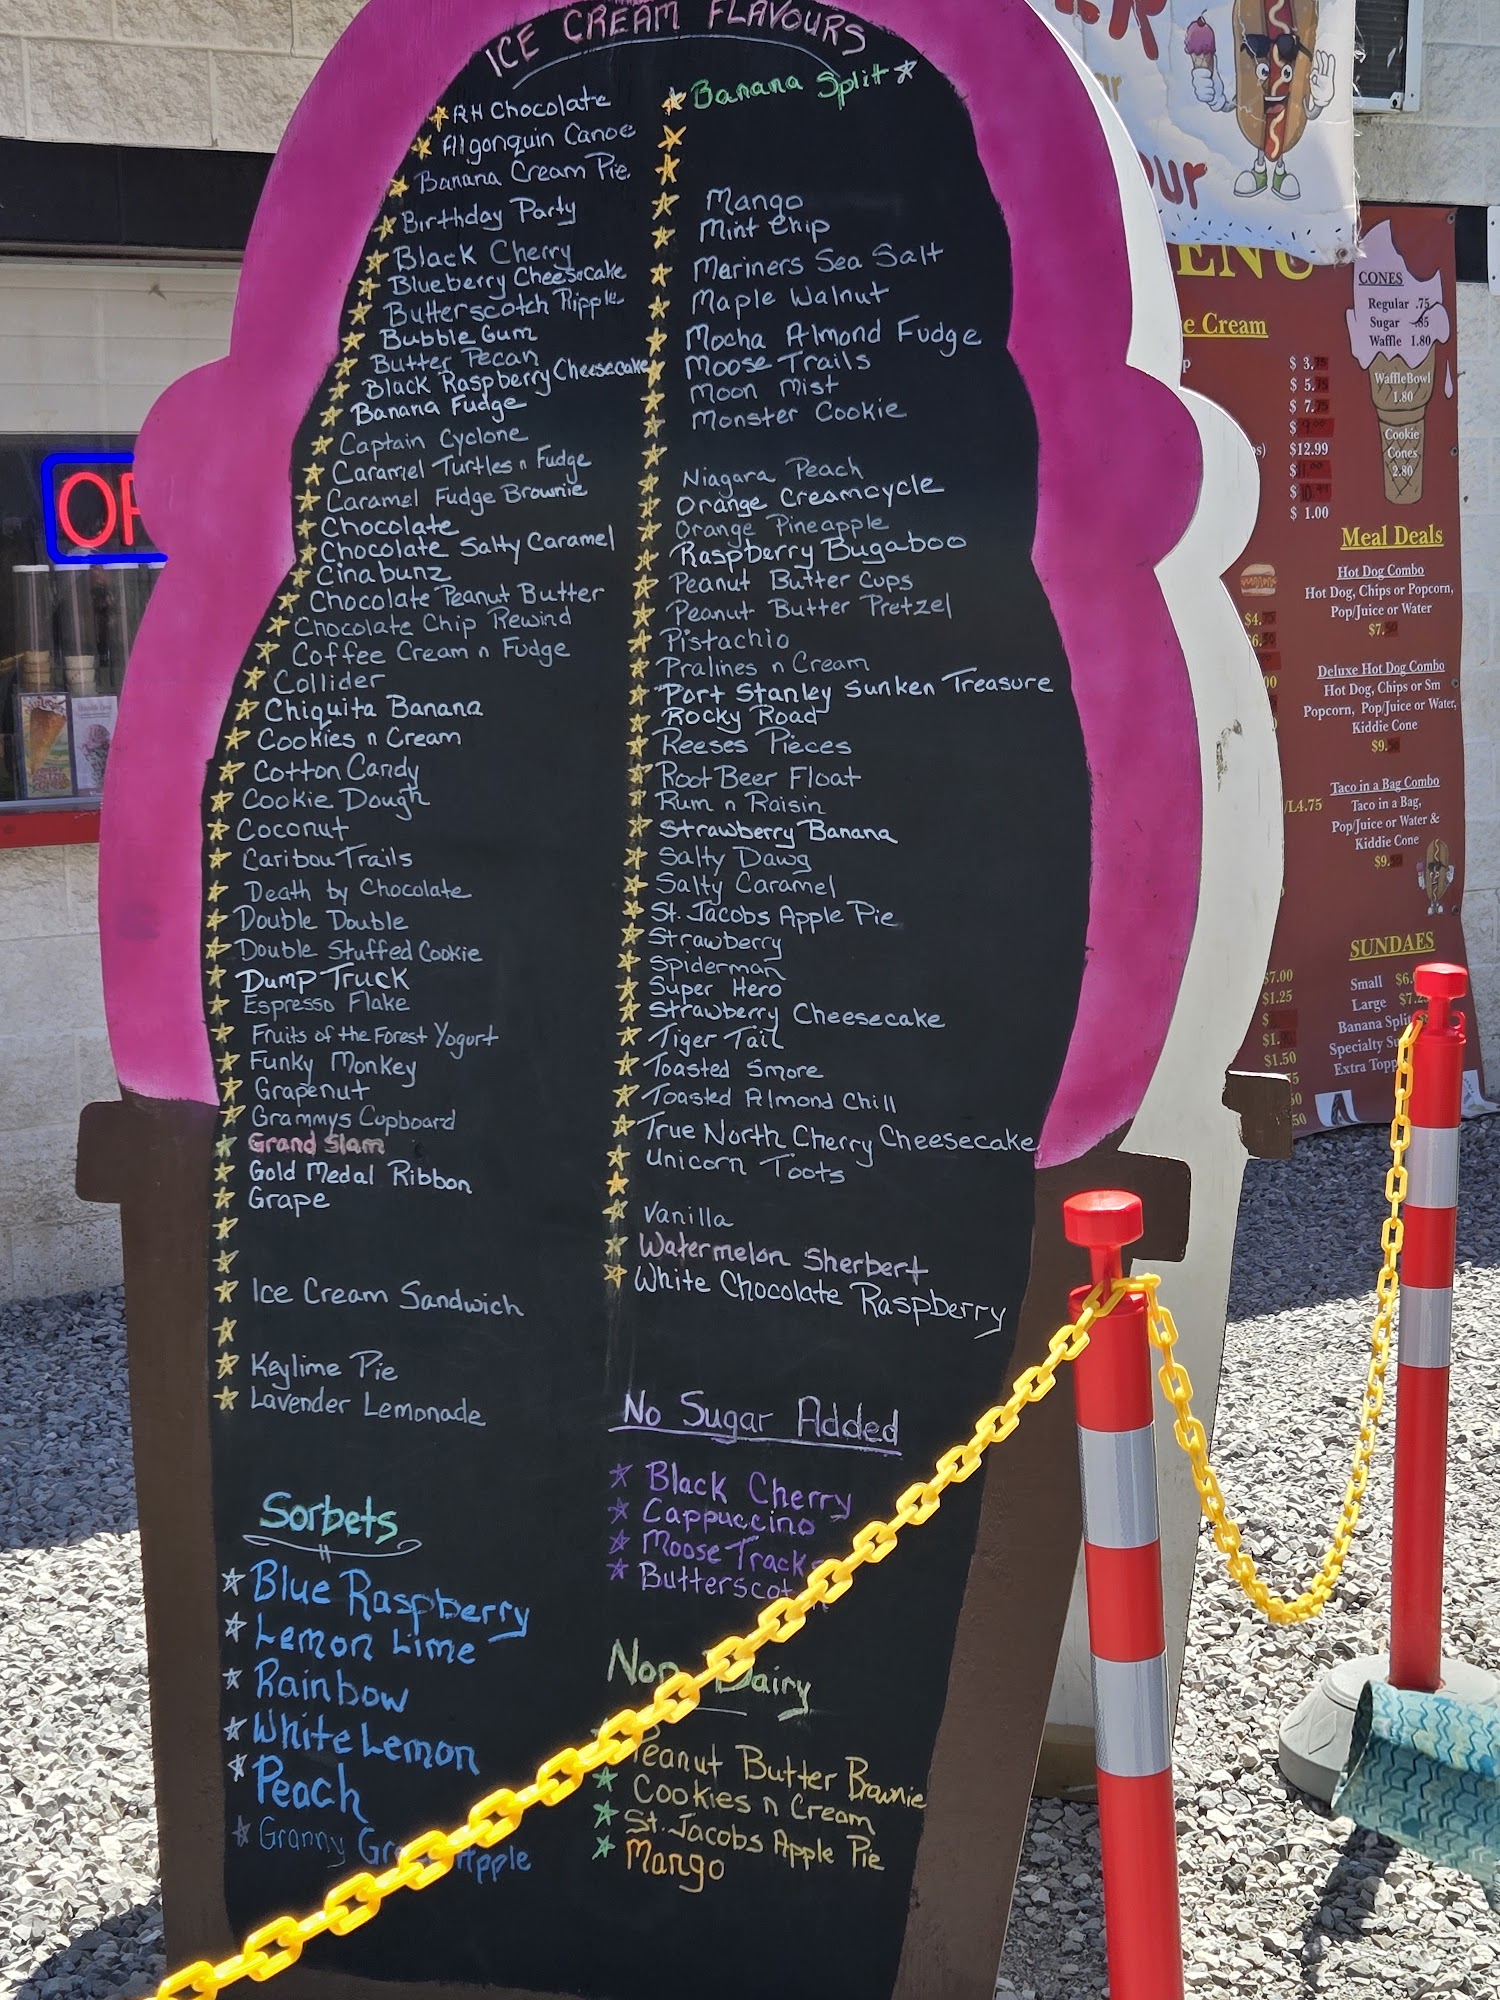 ICE CREAM FLAVOURS
RH Chocolate
Algonquin Canoe
Banana Cream Pie
Birthday Party
Black Cherry
Blueberry Cheesecake
Butterscotch Ripple
Bubble Gum
Butter Pecan
Black Raspberry Cheesecake
Banana Fudge
Captain Cyclone
Caramel Turtles n Fudge
Caramel Fudge Brownie
Chocolate
Chocolate Salty Caramel
Cinabunz
Chocolate Peanut Butter
Chocolate Chip Rewind
Coffee Cream n Fudge
Collider
Chiquita Banana
Cookies n Cream
Cotton Candy
Cookie Dough
Coconut
Caribou Trails
Death by Chocolate
Double Double
Double Stuffed Cookie
Dump Truck
Espresso Flake
Fruits of the Forest Yogurt
Funky Monkey
Grapenut
Grammys Cupboard
Grand Slam
Gold Medal Ribbon
Grape
Ice Cream Sandwich
Keylime Pie
Lavender Lemonade
Banana Split
Mango
Mint Chip
Mariners Sea Salt
Maple Walnut
Mocha Almond Fudge
Moose Trails
Moon Mist
Monster Cookie
Niagara Peach
Orange Creamcycle
Orange Pineapple
Raspberry Bugaboo
Peanut Butter Cups
Peanut Butter Pretzel
Pistachio
Pralines n Cream
Port Stanley Sunken Treasure
Rocky Road
Reeses Pieces
Root Beer Float
Rum n Raisin
Strawberry Banana
Salty Dawg
Salty Caramel
St. Jacobs Apple Pie
Strawberry
Spiderman
Super Hero
Strawberry Cheesecake
Tiger Tail
Toasted Smore
Toasted Almond Chill
True North Cherry Cheesecake
Unicorn Toots
Vanilla
Watermelon Sherbert
White Chocolate Raspberry
Sorbets
Blue Raspberry
Lemon Lime
Rainbow
White Lemon
Peach
Granny Apple
No Sugar Added
Black Cherry
Cappuccino
Moose Tracks
Non Dairy
Peanut Butter Brownie
Cookies n Cream
St. Jacobs Apple Pie
Mango
CONES
Regular .75
Sugar .85
Waffle 1.80
WaffleBowl
1.80
Cookie
Cones
2.80
Cream
$12.99
$ 1.00
Meal Deals
Hot Dog Combo
Hot Dog, Chips or Popcorn,
Pop/Juice or Water
Deluxe Hot Dog Combo
Hot Dog, Chips or Sm
Popcorn, Pop/Juice or Water,
Kiddie Cone
Taco in a Bag Combo
Taco in a Bag,
Pop/Juice or Water &
Kiddie Cone
SUNDAES
Small
Large
Banana Split
Specialty
Extra
$7.00
$1.25
$1.50